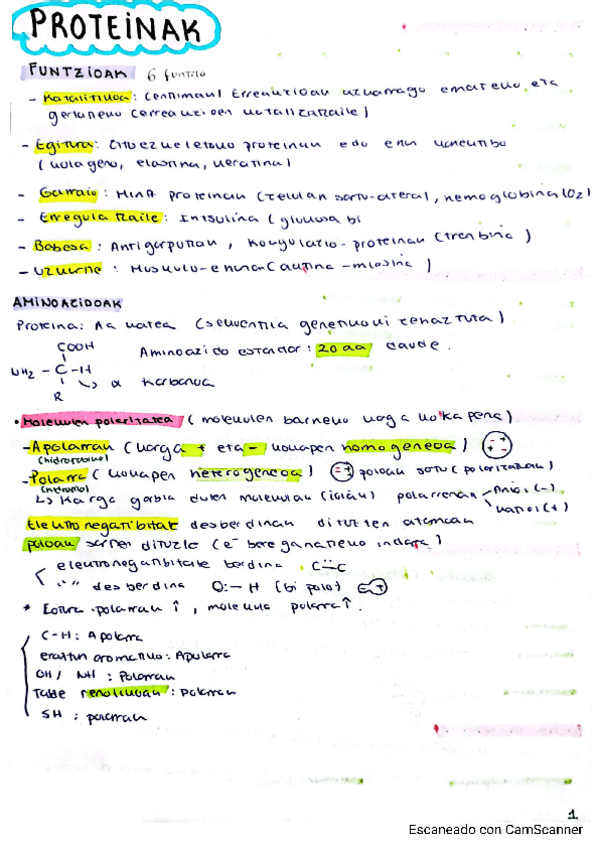 PROTEINAK
FUNTZIOAK 6 funtzio
- Katalitikoa: (entzimak) Erreakzioak azkarrago emateko eta
(erreakzioen katalizatzaile)
- Egitura: Zitoezkeletoko proteinak edo ehun konektibo
(kolageno, elastina, keratina)
- Garraio: Mintz proteinak (zelulan sartu-atera), hemoglobina (O2)
- Erregulatzaile: Intsulina (glukosa
- Babesa: Antigorputzak, koagulazio-proteinak (tronbina)
- Uzkurne: Muskulo-ehunak (aktina-miosina)
AMINOAZIDOAK
Proteina: Aa katea (sekuentzia genetikoki zehaztuta)
COOH
Aminoazido estandar: 20 aa daude.
NH2 - C - H
α Karbonoa
R
• Molekulen polaritatea (molekulen barneko karga
- Apolarrak (karga + eta - kokapen homogeneoa) + - - +
(hidrofoboa)
- Polarra (kokapen heterogeneoa) - + poloak sortu (polarizatzen)
(hidrofilo)
↳ Karga garbia duten molekulak (ioiak) polarrenak anioi (-)
katioi (+)
Elektronegatibitate desberdinak dituzten atomoak
poloak sortzen dituzte (e- bereganatzeko indarra)
elektronegatibitate berdina C:C
" " desberdina O:-H (bipolo) - +
* Lotura polarrak ↑, molekula polarra ↑.
C-H: Apolarra
eraztun aromatiko: Apolarra
OH / NH : Polarrak
Talde fenolikoak: polarrak
SH : polarrak
1
Escaneado con CamScanner